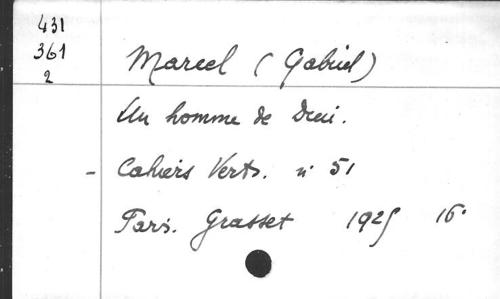 431
361
2
Marcel (Gabriel)
Un homme de Dieu.
- Cahiers Verts. n° 51
Paris. Grasset 1925 16°